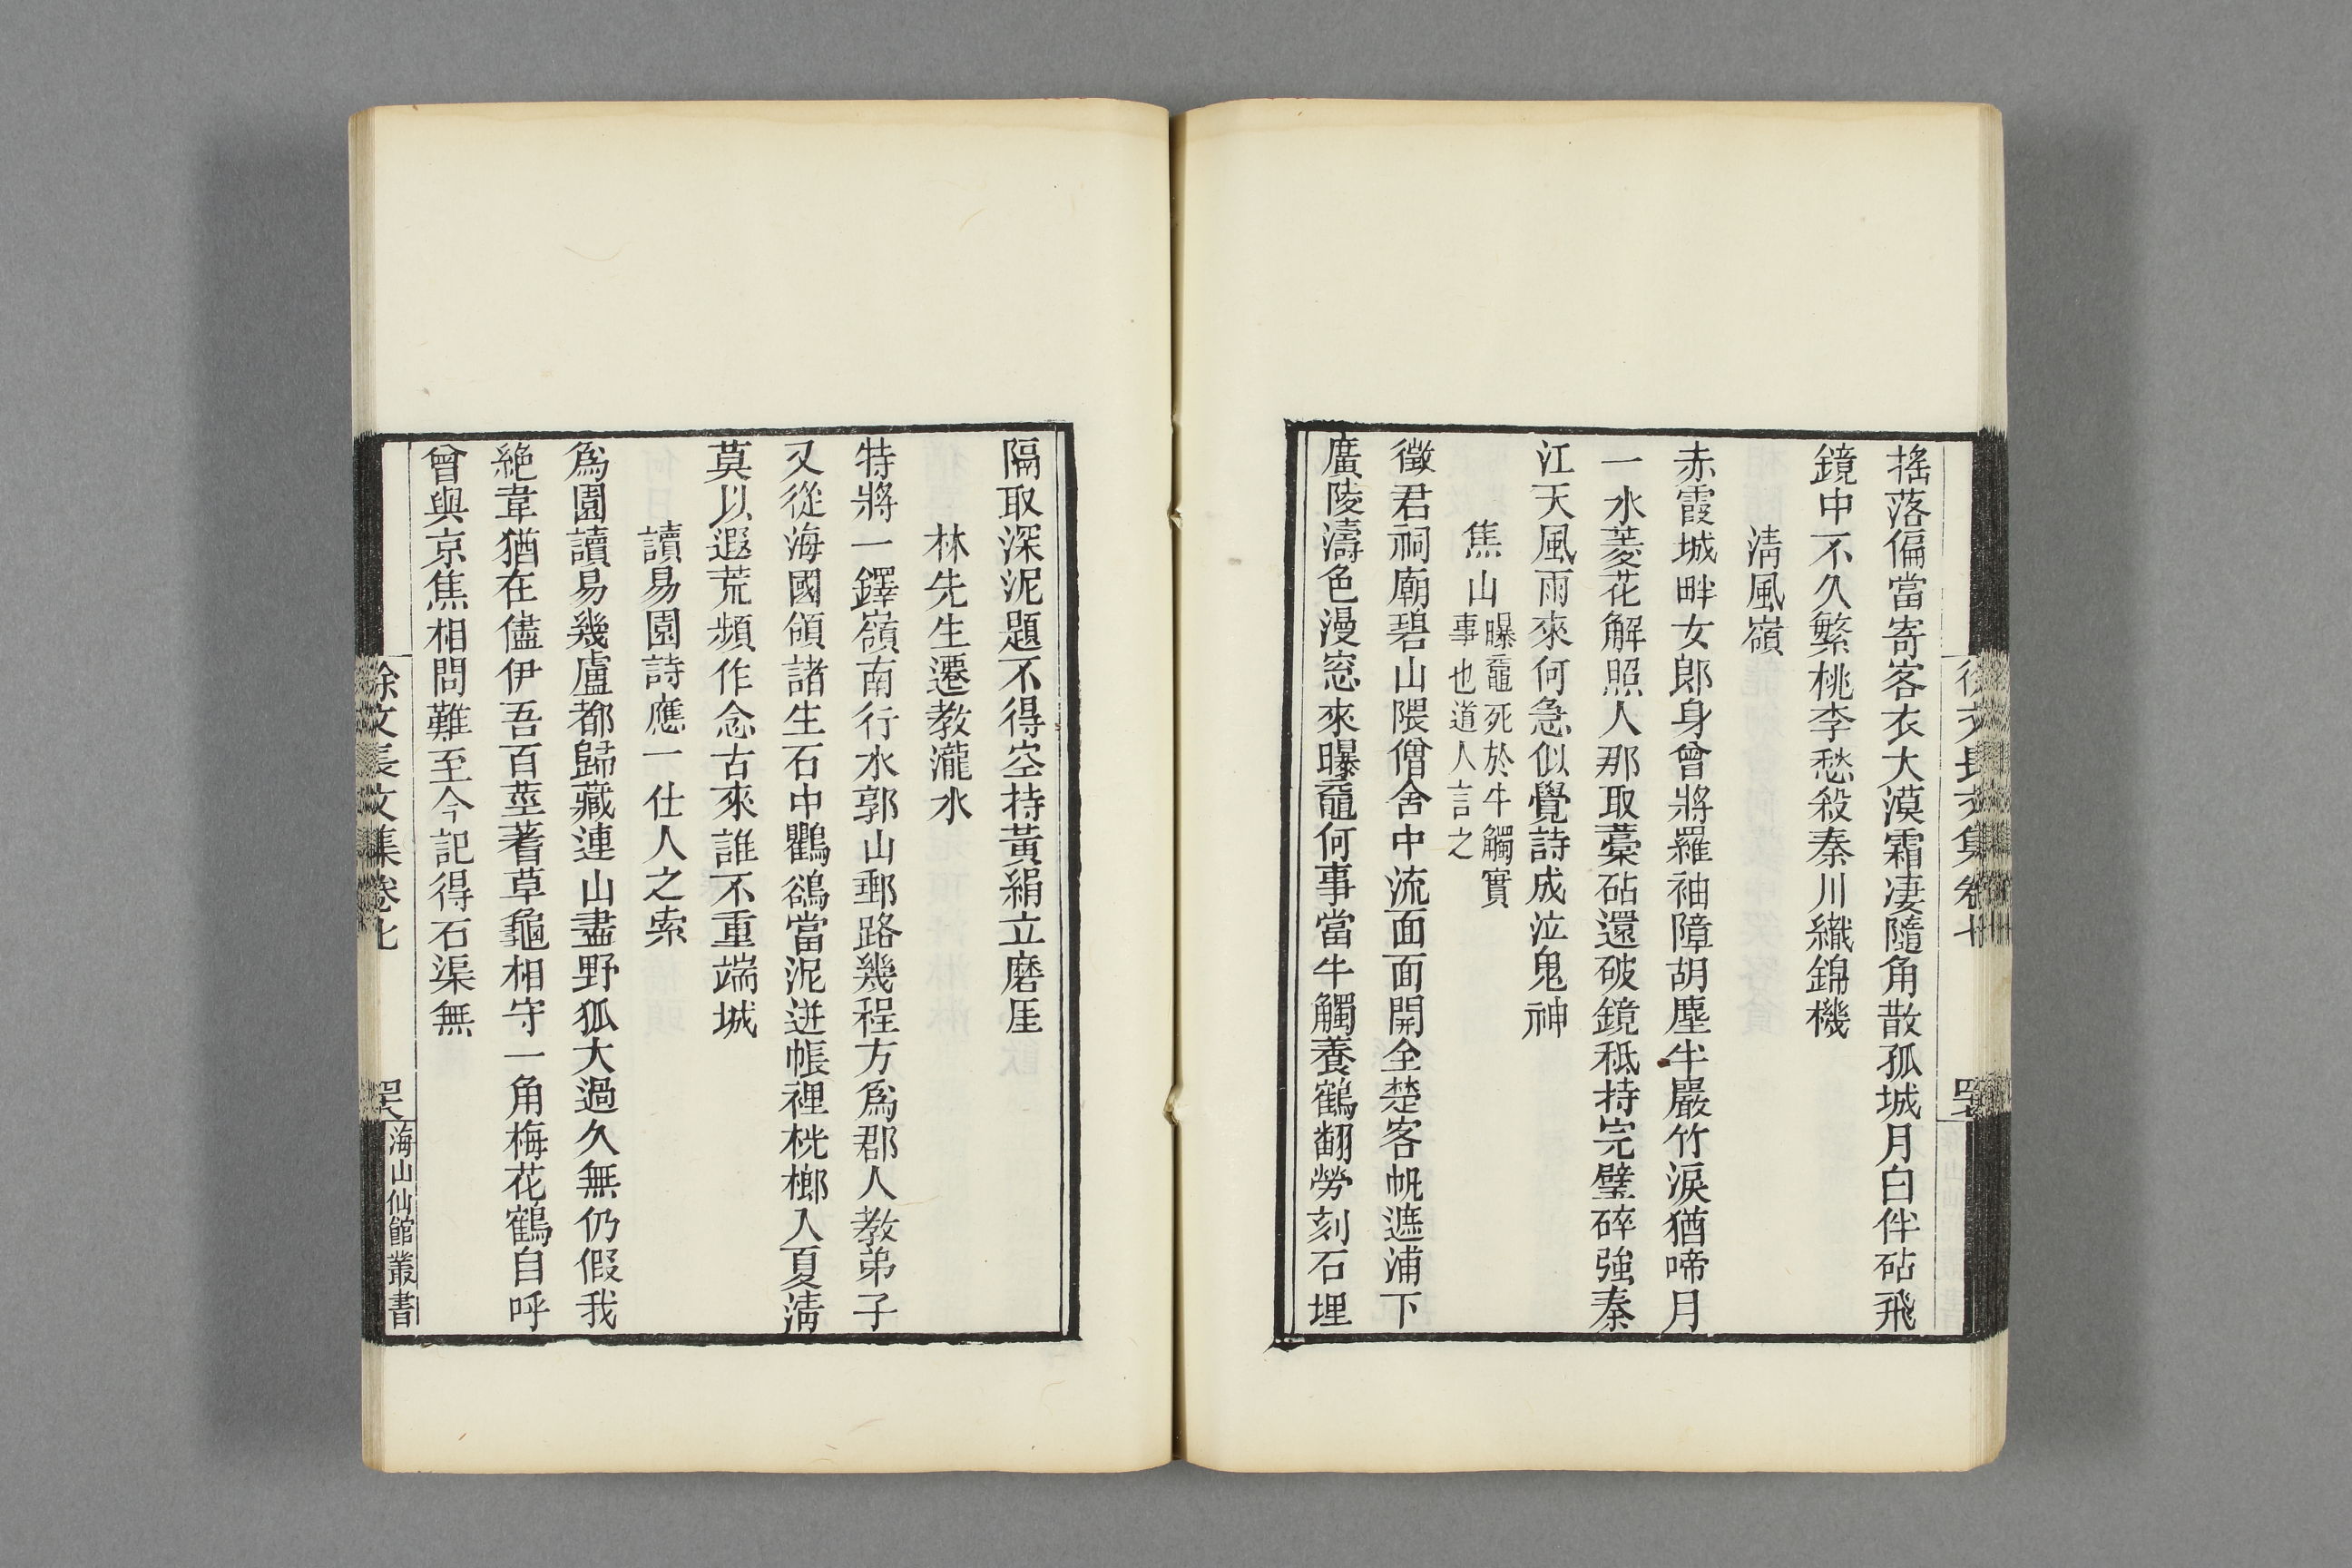 搖落偏當寄客衣大漠霜凄隨角散孤城月白伴砧飛
鏡中不久繁桃李愁殺秦川織錦機
淸風嶺
赤霞城畔女郎身曾將羅袖障胡塵半巖竹淚猶啼月
一水菱花解照人那取藁砧還破鏡秪持完璧碎強秦
江天風雨來何急似覺詩成泣鬼神
焦山
曝黿死於牛觸實
事也道人言之
徵君祠廟碧山隈僧舍中流面面開全楚客帆遮浦下
廣陵濤色漫窓來曝黿何事當牛觸養鶴翻勞刻石埋
隔取深泥題不得空持黃絹立磨厓
林先生遷教瀧水
特將一鐸嶺南行水郭山郵路幾程方爲郡人教弟子
又從海國領諸生石中鸜鵒當泥迸帳裡桄榔入夏淸
莫以遐荒頻作念古來誰不重端城
讀易園詩應一仕人之索
爲園讀易幾盧都歸藏連山盡野狐大過久無仍假我
絶韋猶在儘伊吾百莖蓍草龜相守一角梅花鶴自呼
曾與京焦相問難至今記得石渠無
徐文長文集卷七
海山仙館叢書